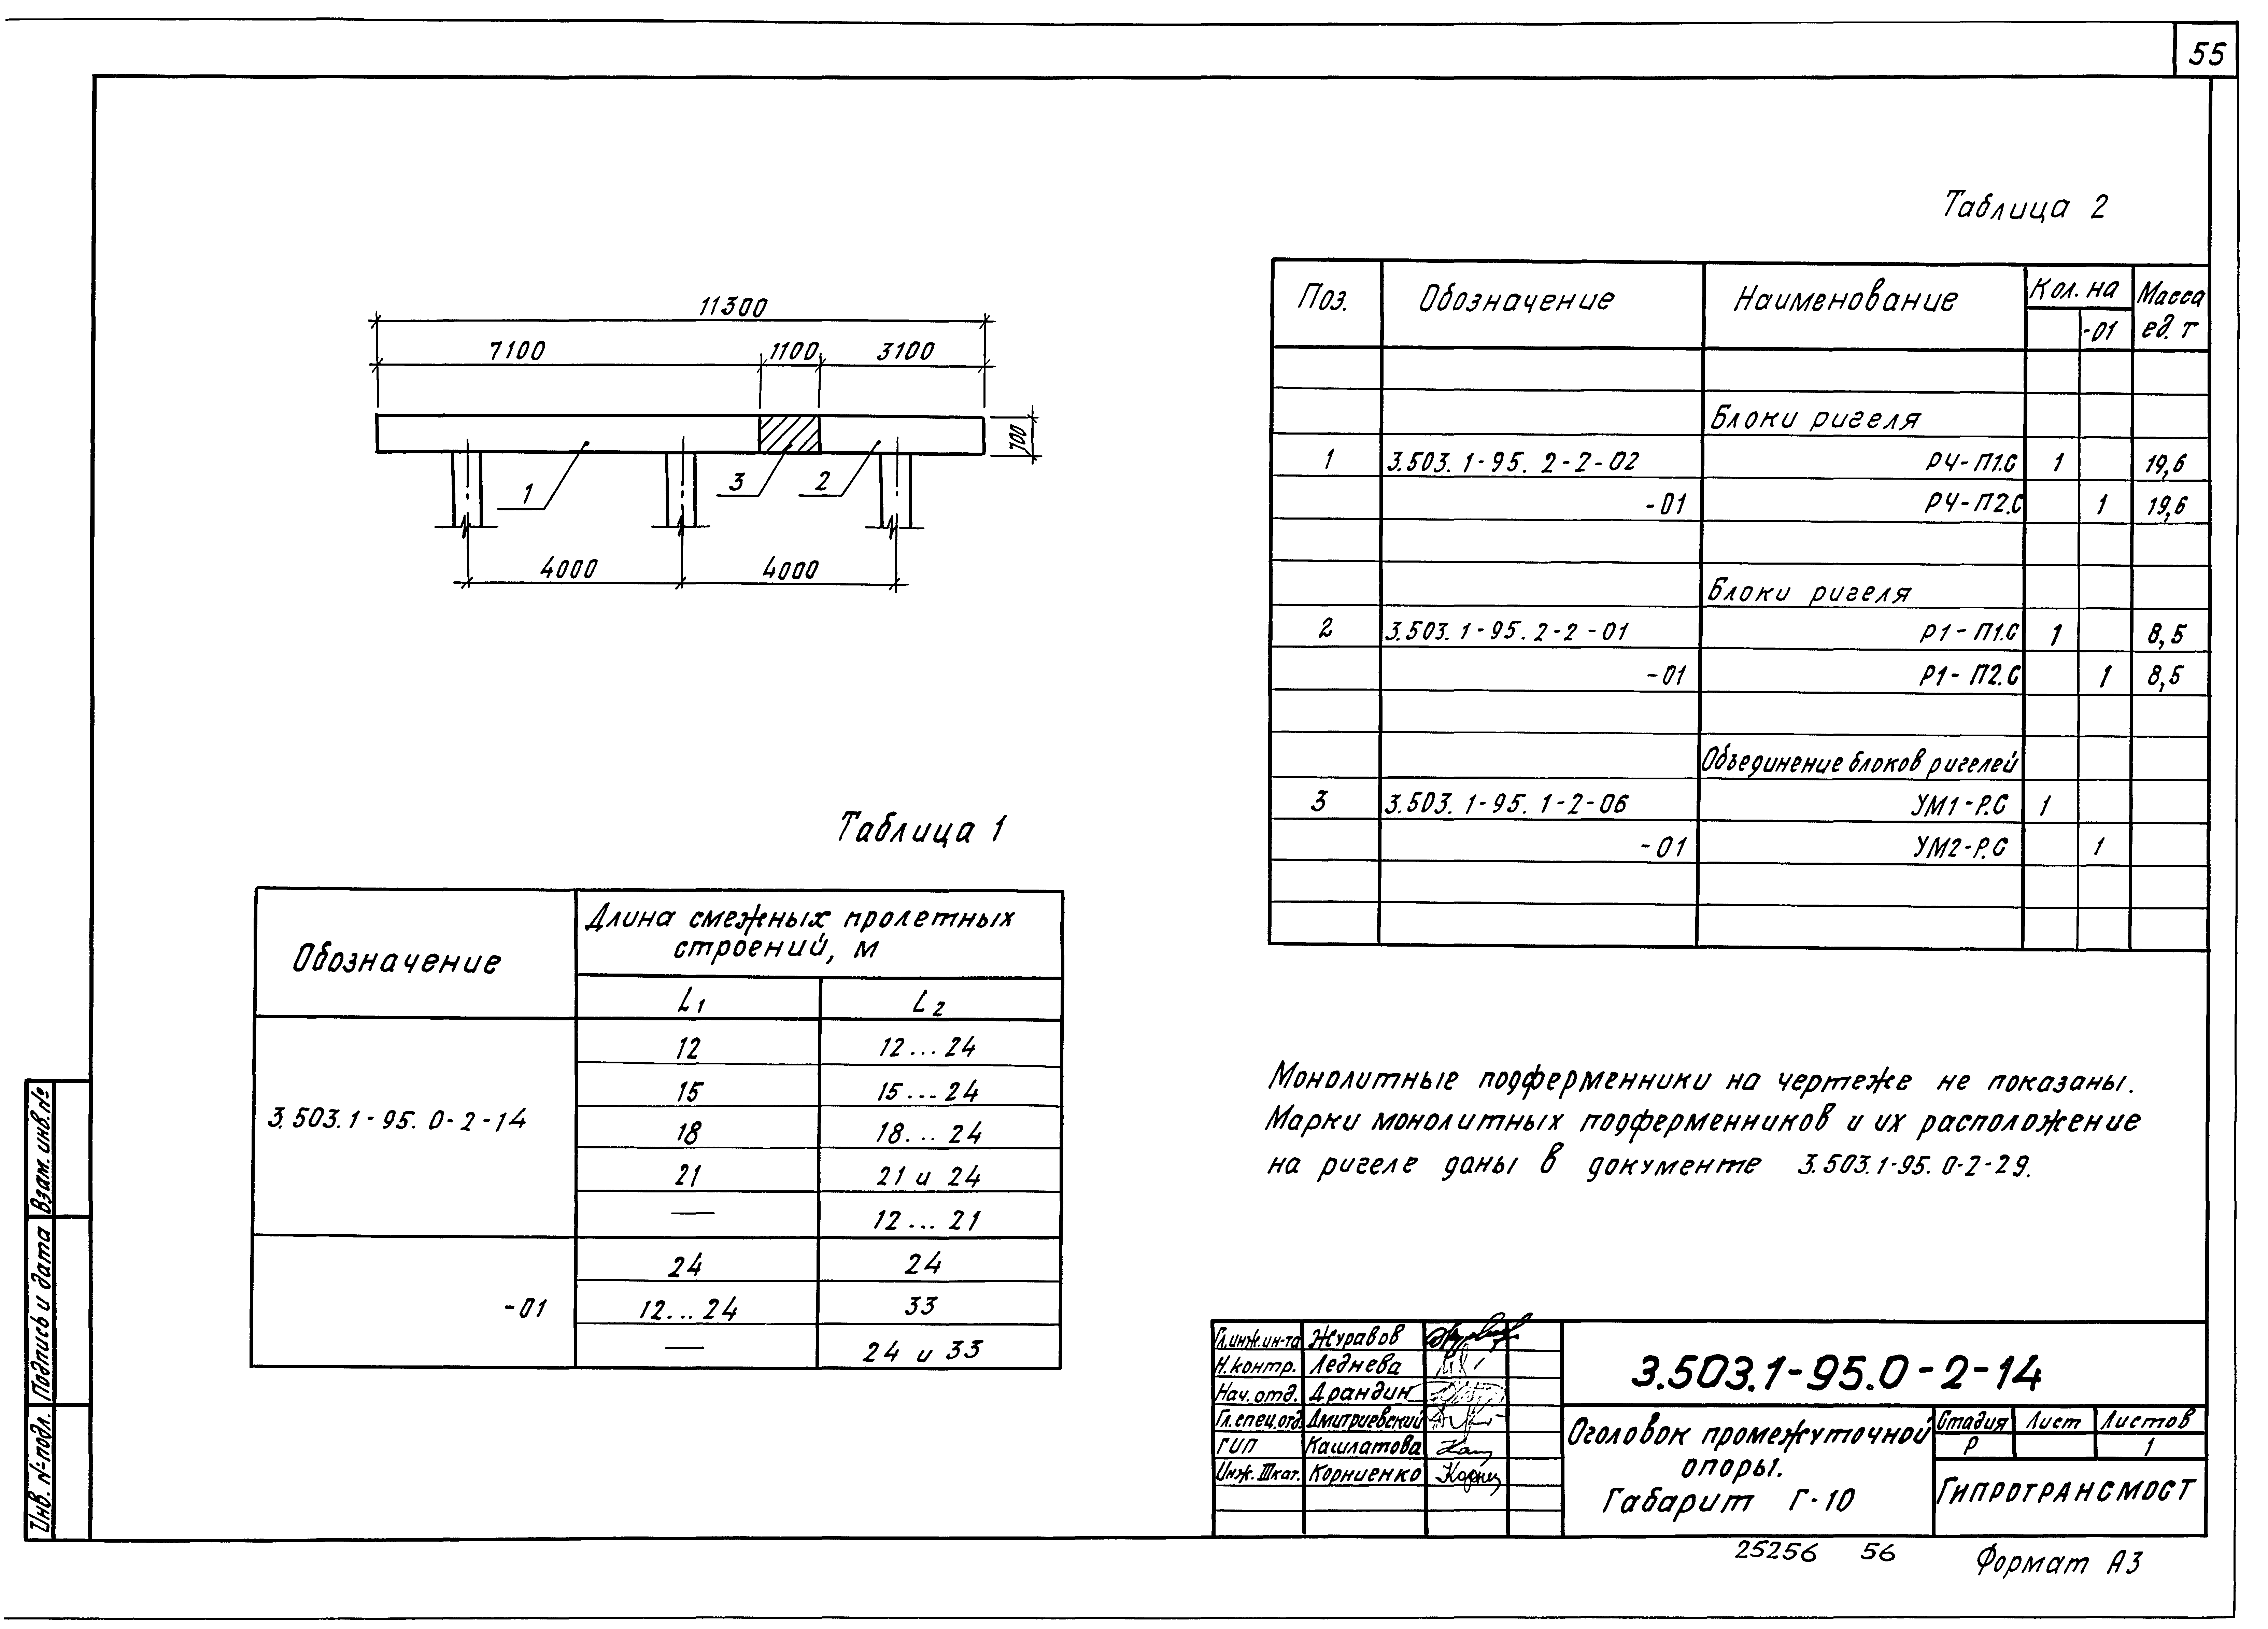 55
11300
7100 1100 3100
700
1 3 2
4000 4000
Таблица 1
Обозначение Длина смежных пролетных
строений, м
L1 L2
12 12...24
15 15...24
3.503.1-95.0-2-14
18 18...24
21 21 и 24
— 12...21
24 24
-01 12...24 33
— 24 и 33
Таблица 2
Поз. Обозначение Наименование Кол. на Масса
-01 ед. т
Блоки ригеля
1 3.503.1-95.2-2-02 Р4-П1.С 1 19,6
-01 Р4-П2.С 1 19,6
Блоки ригеля
2 3.503.1-95.2-2-01 Р1-П1.С 1 8,5
-01 Р1-П2.С 1 8,5
Объединение блоков ригелей
3 3.503.1-95.1-2-06 УМ1-Р.С 1
-01 УМ2-Р.С 1
Монолитные подферменники на чертеже не показаны.
Марки монолитных подферменников и их расположение
на ригеле даны в документе 3.503.1-95.0-2-29.
Гл.инж.ин-та Журавов
Н.контр. Леднева
Нач.отд. Драндин
Гл.спец.отд. Дмитриевский
ГИП Кашлатова
Инж. III кат. Корниенко
3.503.1-95.0-2-14
Оголовок промежуточной
опоры.
Габарит Г-10
Стадия Лист Листов
Р 1
Гипротрансмост
25256 56
Формат А3
Взам. инв.№
Подпись и дата
Инв. № подл.